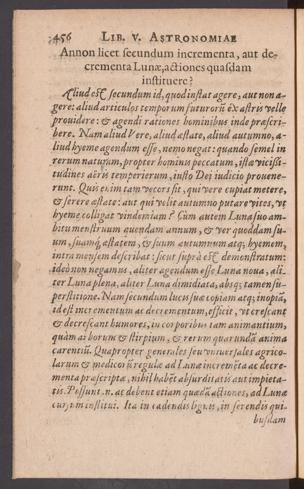 456 LIB. V. ASTRONOMIAE
Annon licet secundum incrementa, aut de-
crementa Lunæ, actiones quasdam
instituere?
Aliud est secundum id, quod instat agere, aut non a-
gere: aliud articulos temporum futurorũ ex astris velle
prouidere: & agendi rationes hominibus inde præscri-
bere. Nam aliud Vere, aliud æstate, aliud autumno, a-
liud hyeme agendum esse, nemo negat: quando semel in
rerum naturam, propter hominis peccatum, istæ vicissi-
tudines aëris temperierum, iusto Dei iudicio prouene-
runt. Quis enim tam vecors sit, qui vere cupiat metere,
& serere æstate: aut qui velit autumno putare vites, vt
hyeme colligat vindemiam? Cùm autem Luna suo am-
bitu menstruum quendam annum, & ver quoddam su-
um, suamq; æstatem, & suum autumnum atq; hyemem,
intra mensem describat: sicut suprà est demonstratum:
ideò non negamus, aliter agendum esse Luna noua, ali-
ter Luna plena, aliter Luna dimidiata, absq; tamen su-
perstitione. Nam secundum lucis suæ copiam atq; inopiã,
id est incrementum ac decrementum, efficit, vt crescant
& decrescant humores, in corporibus tam animantium,
quàm arborum & stirpium, & rerum quarundã anima
carentiũ. Quapropter generales seu vniuersales agrico-
larum & medicorũ regulæ ad Lunæ incremẽta ac decre-
menta præscriptæ, nihil habẽt absurditatis aut impieta-
tis. Possunt .n. ac debent etiam quædã actiones, ad Lunæ
cursum institui. Ita in cædendis lignis, in serendis qui-
busdam